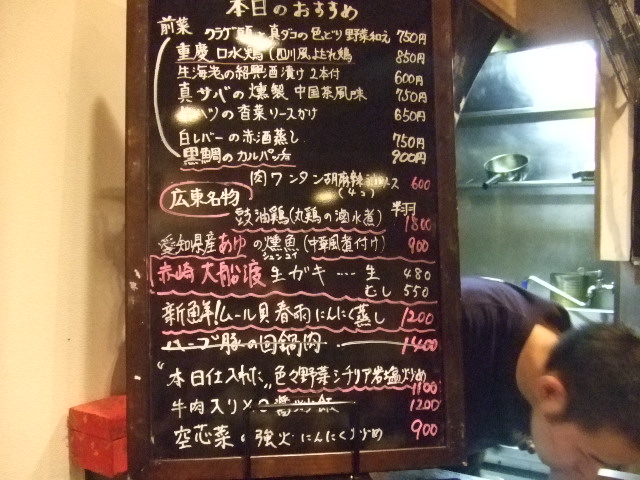 本日のおすすめ
前菜 クラゲ頭と真ダコの色どり野菜和え 750円
重慶 口水鶏(四川風よだれ鶏) 850円
生海老の紹興酒漬け 2本付 600円
真サバの燻製 中国茶風味 750円
ハツの香菜ソースかけ 650円
白レバーの赤酒蒸し 750円
黒鯛のカルパッチョ 900円
肉ワンタン胡麻辣油ソース 600
(4コ)
広東名物
豉油鶏(丸鶏の滷水煮) 半羽 1800
愛知県産あゆの燻魚(中華風煮付け) 900
シュンユイ
赤崎 大船渡 生ガキ ---- 生 480
むし 550
新鮮!ムール貝春雨にんにく蒸し 1200
ハーブ豚の回鍋肉 1400
"本日仕入れた" 色々野菜シチリア岩塩炒め 1100
牛肉入り 醤炒飯 1200
空芯菜の強火にんにく炒め 900